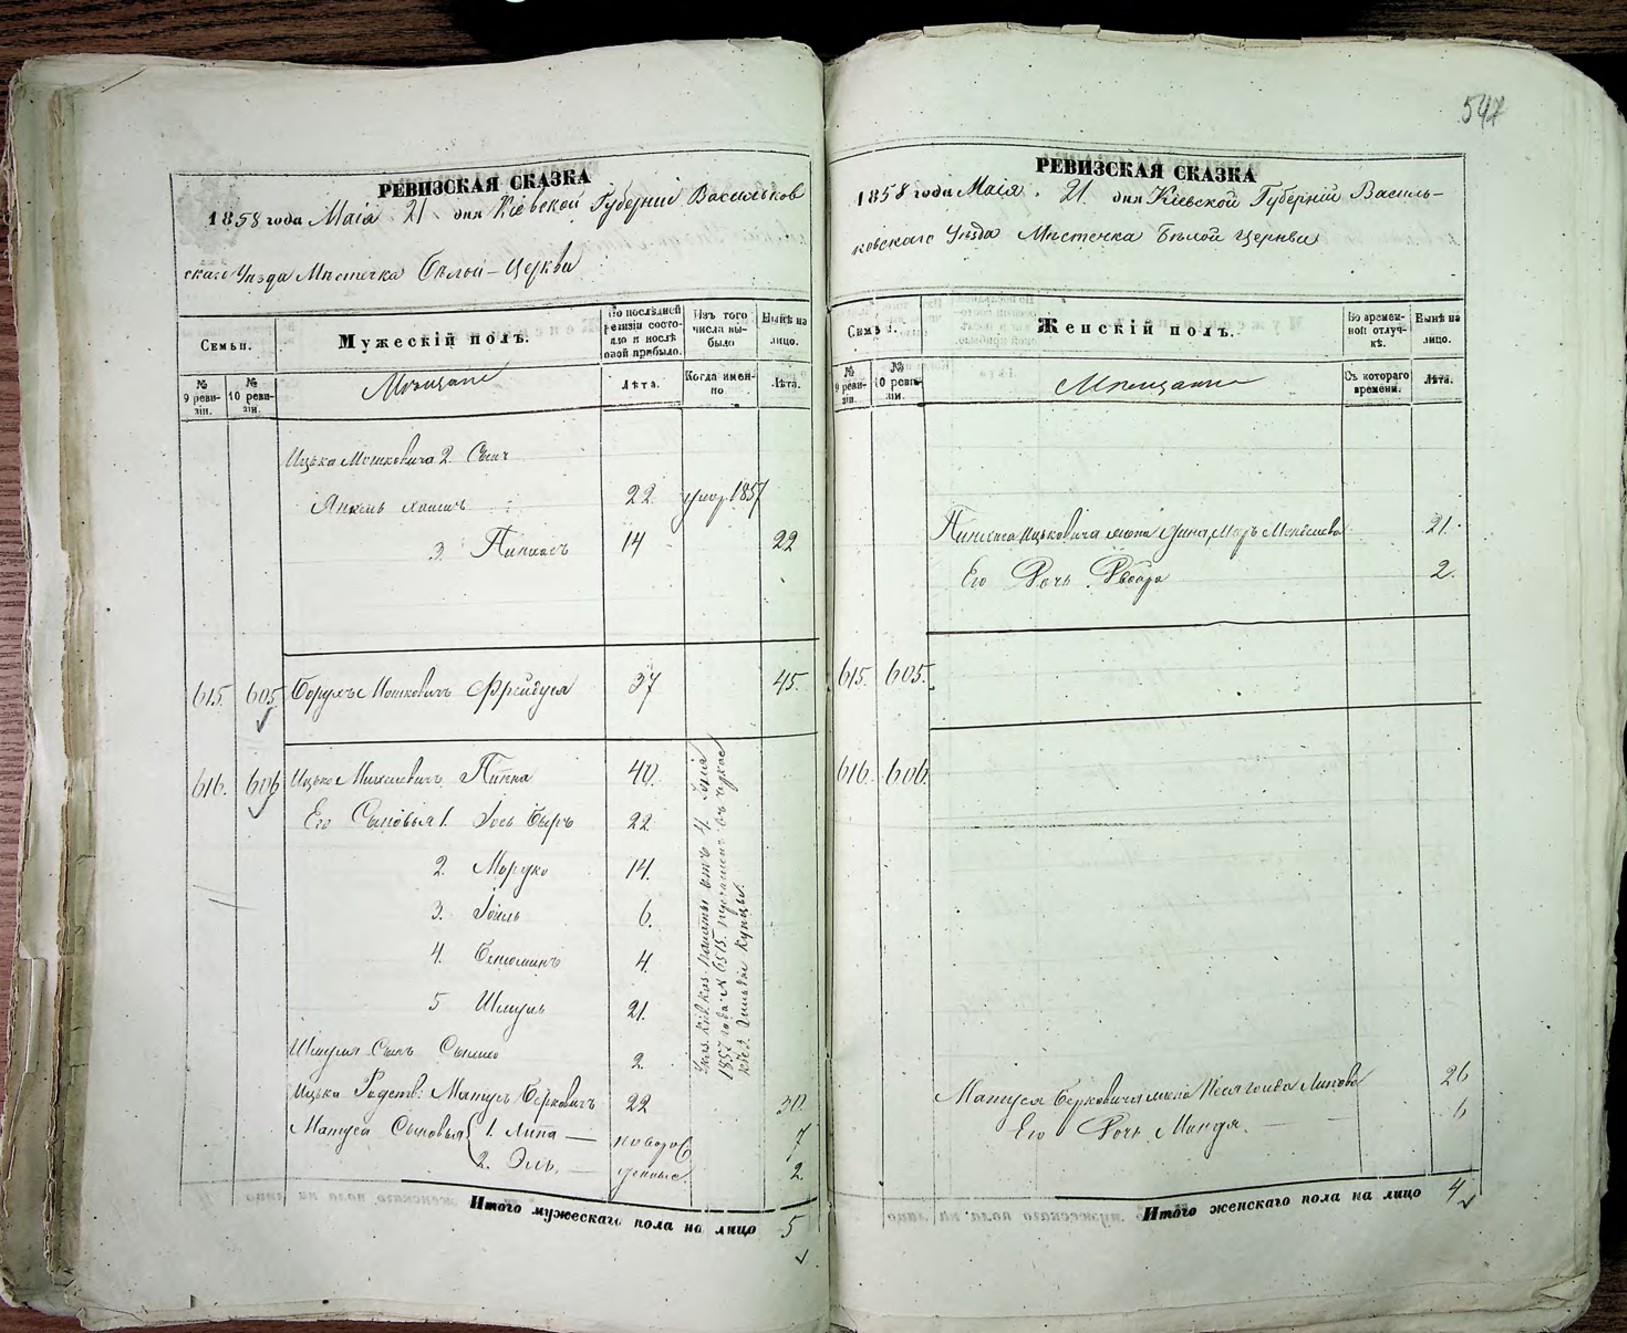 РЕВИЗСКАЯ СКАЗКА
1858 года Маія 21 дня Кіевской Губерніи Васильков
скаго Уѣзда Мѣстечка Бѣлой-Церкви
Семьи.
Мужескій полъ.
По послѣдней ревизіи состояло и послѣ оной прибыло.
Изъ того числа выбыло
Нынѣ на лицо.
№ 9 ревизіи.
№ 10 ревизіи.
Мѣщане
Лѣта.
Когда именно
Лѣта.
Ицька Мошковича 2. Сынъ
Янкель 22. умер. 1857
3. Пинхасъ 14 22
615. 605. Борухъ Мошковичъ 37 45.
616. 606 Ицько 40.
Его Сыновья 1. Іось Беръ 22
2. Мордко 14.
3. Іоиль 6.
4. Бенюминъ 4.
5 Шмуль 21.
Шмуля Сынъ 2.
Ицька Родств: Матусъ Берковичъ 22 30.
Матуса Сыновья 1. Липа — новорож 7
2. Эль, — денные. 2
Указ. Кіев. Каз. палаты отъ 4. Іюля
1857 года № 6515. въ
Купцы.
Итого мужескаго пола на лицо 5
547
РЕВИЗСКАЯ СКАЗКА
1858 года Маія. 21. дня Кіевской Губерніи Василь-
ковскаго Уѣзда Мѣстечка Бѣлой Церкви
Семьи.
Женскій полъ.
Во временной отлучкѣ.
Нынѣ на лицо.
№ 9 ревизіи.
10 ревизіи.
Мѣщане
Съ котораго времени.
Лѣта.
Пинхаса Ицьковича жена 21.
Его Дочь Двойра 2.
615. 605.
616. 606.
Матуса Берковича жена 26
Его Дочь Миндя. — — 6
Итого женскаго пола на лицо 4